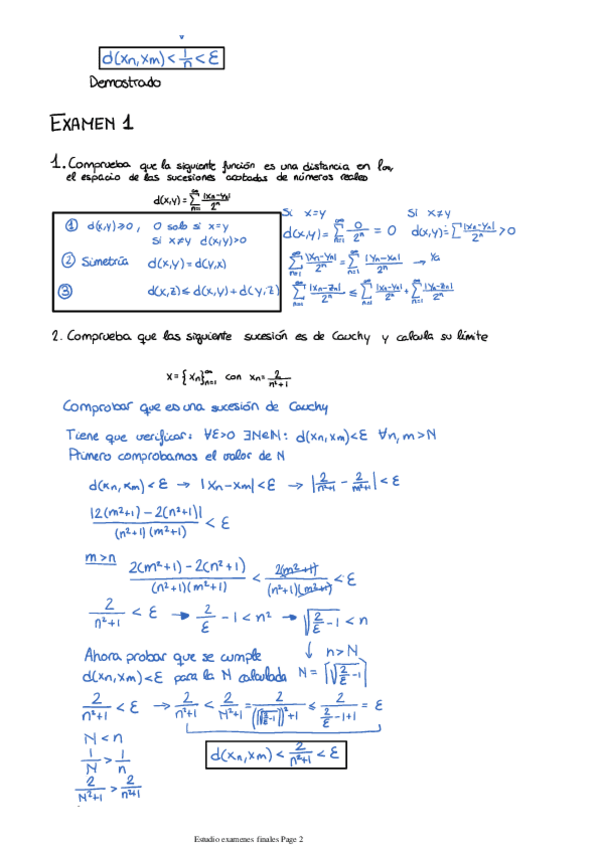 d(xn, xm) < 1/n < ε
Demostrado
EXAMEN 1
1. Comprueba que la siguiente función es una distancia en l∞,
el espacio de las sucesiones acotadas de números reales
d(x,y) = Σ_{n=1}^∞ |xn-yn|/2^n
① d(x,y) ≥ 0, 0 solo si x=y
Si x≠y d(x,y)>0
② Simetría d(x,y) = d(y,x)
③ d(x,z) ≤ d(x,y) + d(y,z)
Si x=y Si x≠y
d(x,y) = Σ_{n=1}^∞ 0/2^n = 0 d(x,y) = Σ |xn-yn|/2^n > 0
Σ_{n=1}^∞ |xn-yn|/2^n = Σ_{n=1}^∞ |yn-xn|/2^n → Ya
Σ_{n=1}^∞ |xn-zn|/2^n ≤ Σ_{n=1}^∞ |xn-yn|/2^n + Σ_{n=1}^∞ |yn-zn|/2^n
2. Comprueba que las siguiente sucesión es de Cauchy y calcula su límite
x = {xn}_{n=1}^∞ con xn = 2/(n²+1)
Comprobar que es una sucesión de Cauchy
Tiene que verificar: ∀ε>0 ∃N∈ℕ: d(xn, xm) < ε ∀n, m > N
Primero comprobamos el valor de N
d(xn, xm) < ε → |xn-xm| < ε → |2/(n²+1) - 2/(m²+1)| < ε
|2(m²+1) - 2(n²+1)|/((n²+1)(m²+1)) < ε
m>n
(2(m²+1) - 2(n²+1))/((n²+1)(m²+1)) < 2(m²+1)/((n²+1)(m²+1)) < ε
2/(n²+1) < ε → 2/ε - 1 < n² → √(2/ε - 1) < n
↓ n>N
Ahora probar que se cumple
d(xn, xm) < ε para la N calculada N = ⌈√(2/ε - 1)⌉
2/(n²+1) < ε → 2/(n²+1) < 2/(N²+1) = 2/((⌈√(2/ε - 1)⌉)²+1) ≤ 2/(2/ε - 1 + 1) = ε
N < n
1/N > 1/n
2/(N²+1) > 2/(n²+1)
d(xn, xm) < 2/(n²+1) < ε
Estudio examenes finales Page 2